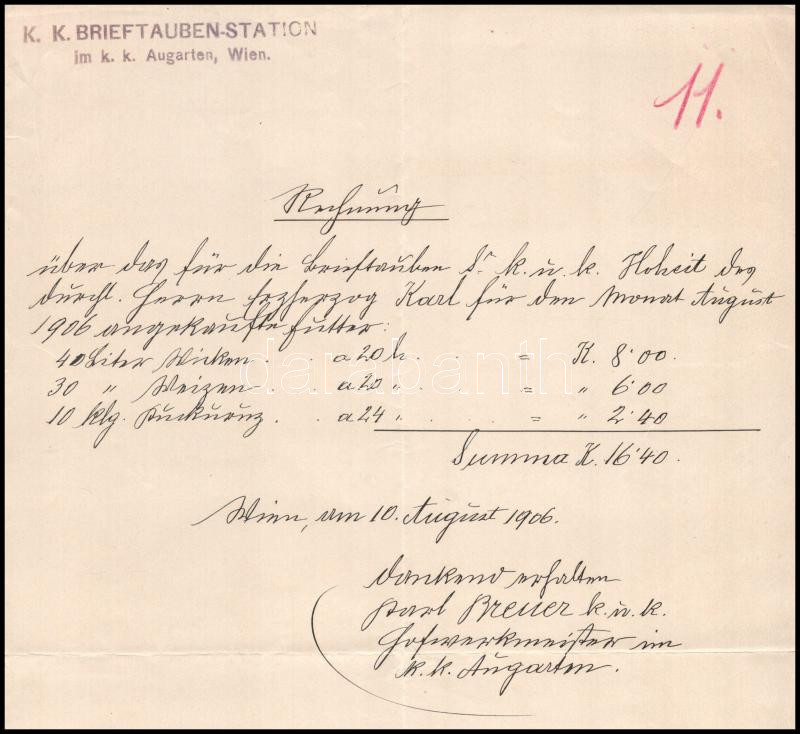 K. K. BRIEFTAUBEN-STATION
im k. k. Augarten, Wien.
11.
Rechnung
über das für die Brieftauben Sr k. u. k. Hoheit des
durchl. Herrn Erzherzog Karl für den Monat August
1906 angekaufte Futter:
40 Liter Wicken . . . a 20 h. . . . = K. 8·00.
30 " Weizen . . . a 20 " . . . = " 6·00
10 klg. Kuckuruz . . a 24 " . . . = " 2·40
Summa K. 16·40.
Wien, am 10. August 1906.
dankend erhalten
Karl Breuer k. u. k.
Hofwerkmeister im
k. k. Augarten.
darabanth